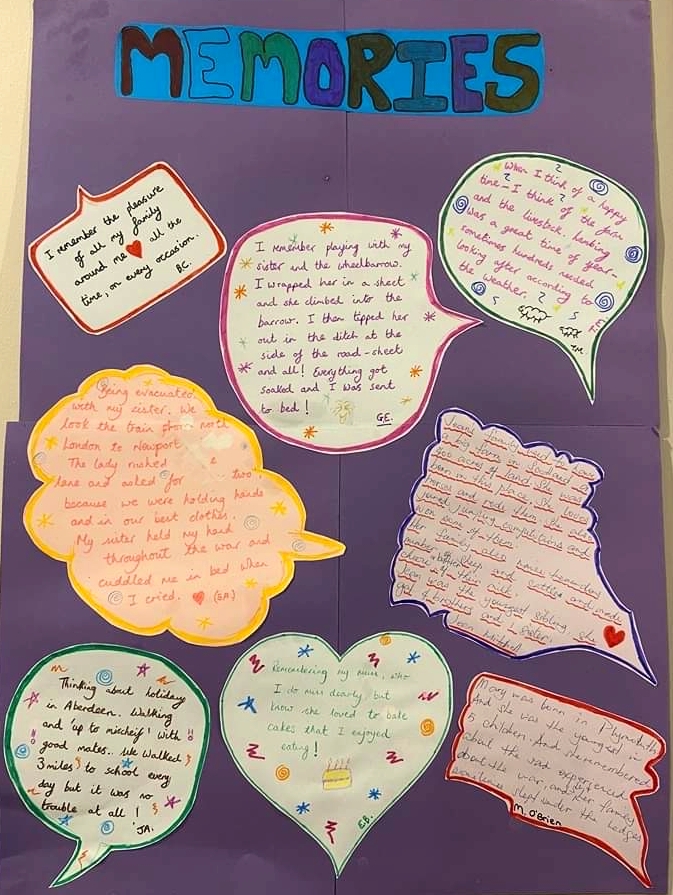 MEMORIES
I remember the pleasure
of all my family
around me all the
time, on every occasion.
B.C.
I remember playing with my
sister and the wheelbarrow.
I wrapped her in a sheet
and she climbed into the
barrow. I then tipped her
out in the ditch at the
side of the road-sheet
and all! Everything got
soaked and I was sent
to bed!
G.E.
When I think of a happy
time - I think of the farm
and the livestock, lambing
was a great time of year-
sometimes hundreds needed
looking after according to
the weather.
Being evacuated
with my sister. We
took the train from north
London to Newport.
The lady rushed
lane and asked for two,
because we were holding hands
and in our best clothes.
My sister held my hand
throughout the war and
cuddled me in bed when
I cried. (E.A.)
Jean's family used to have
a big farm in Scotland
acres of land. She was
born in this place. She loved
horses and rode them. She also
joined jumping competitions and
won some of them.
Her family also have tremendous
number of sheep and cattles and made
cheese of their milk.
Jean was the youngest sibling. She
got brothers and sisters.
Jean Mitchell
Thinking about holidays
in Aberdeen. Walking
and 'up to mischeif' with
good mates.. We walked
3 miles to school every
day but it was no
trouble at all!
JA.
Remembering my mum, who
I do miss dearly, but
know she loved to bake
cakes that I enjoyed
eating!
E.B.
Mary was born in Plymouth
And she was the youngest in
5 children. And remembered
about the sad experienced
about the war and her family
sometimes slept under the hedges
M. O'Brien